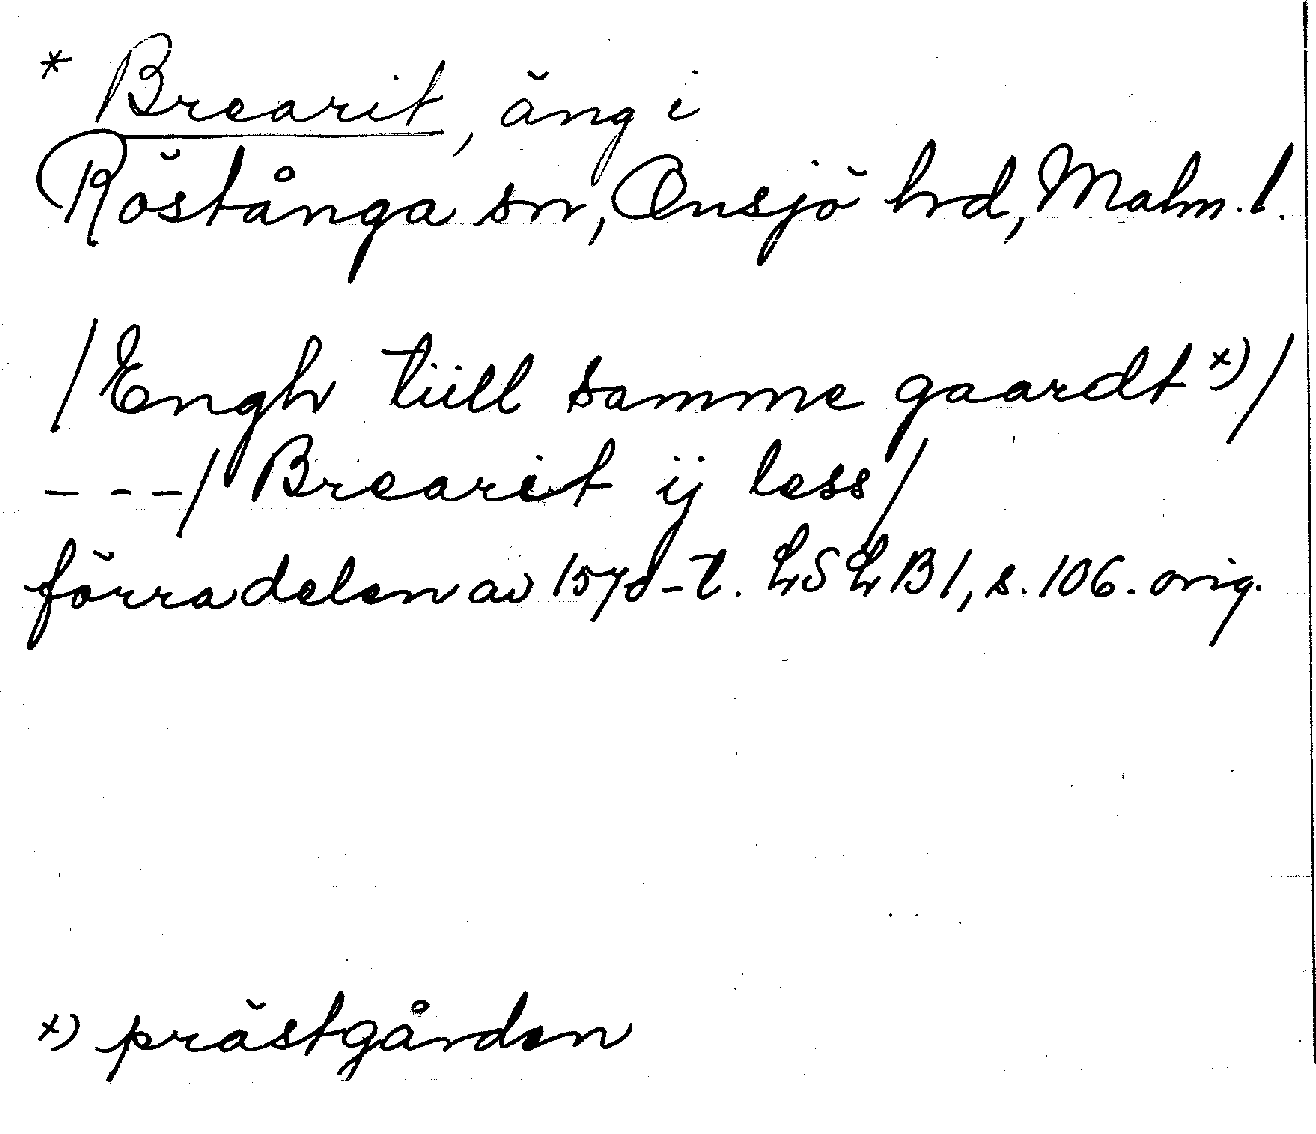 * Brearit, äng i
Röstånga sn, Onsjö hrd, Malm. l.
/Engh tiill samme gaardt x)/
- - - / Brearit ij less/
förra delen av 1570-t. LSLB1, s. 106. orig.
x) prästgården